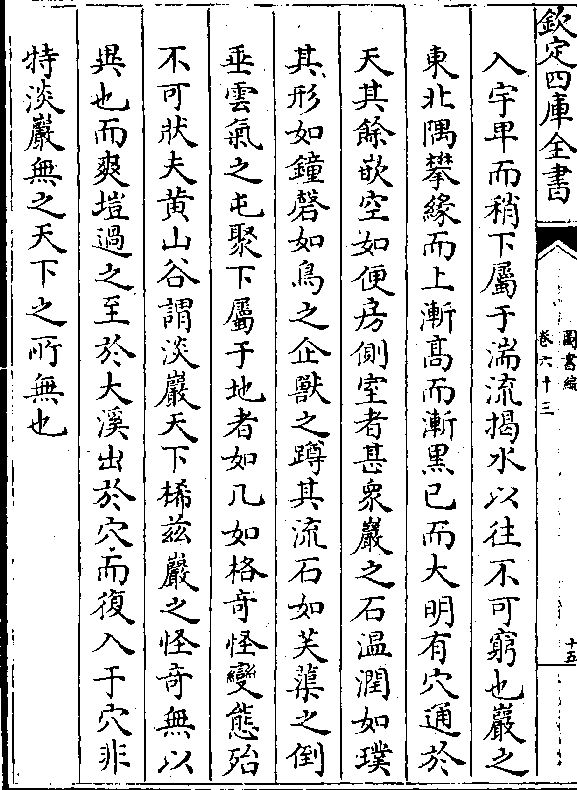 欽定四庫全書
圖書編
卷六十三
十五
入字甲而稍下屬于湍流揭水以往不可窮也巖之
東北隅攀緣而上漸高而漸黑已而大明有穴通於
天其餘嵌空如便房側室者甚衆巖之石溫潤如璞
其形如鐘磬如鳥之企獸之蹲其流石如芙蕖之倒
垂雲氣之屯聚下屬于地者如几如格竒怪變態殆
不可狀夫黄山谷謂淡巖天下桸兹巖之怪竒無以
異也而爽塏過之至於大溪出於穴而復入于穴非
特淡巖無之天下之所無也